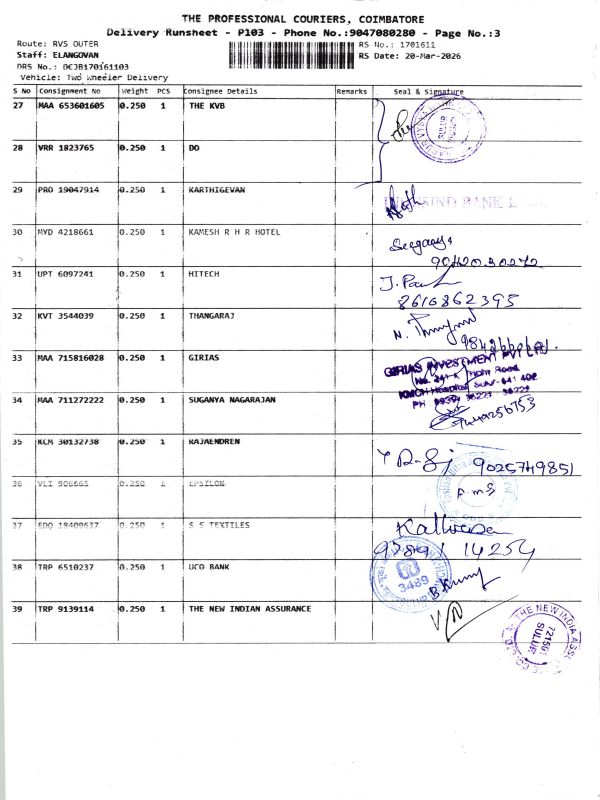 THE PROFESSIONAL COURIERS, COIMBATORE
Delivery Runsheet - P103 - Phone No.:9047080280 - Page No.:3
Route: RVS OUTER RS No.: 1701611
Staff: ELANGOVAN RS Date: 20-Mar-2026
DRS No.: OCJB170161103
Vehicle: Two Wheeler Delivery
S No Consignment No Weight PCS Consignee Details Remarks Seal & Signature
27 MAA 653601605 0.250 1 THE KVB
28 VRR 1823765 0.250 1 DO
29 PRO 19047914 0.250 1 KARTHIGEVAN
30 MYD 4218661 0.250 1 KAMESH R H R HOTEL
31 UPT 6097241 0.250 1 HITECH J. Paul
8616862395
32 KVT 3544039 0.250 1 THANGARAJ
33 MAA 715816028 0.250 1 GIRIAS GIRIAS INVESTMENT PVT LTD
34 MAA 711272222 0.250 1 SUGANYA NAGARAJAN
35 KCM 30132738 0.250 1 RAJAENDREN 9025749851
36 VLI 906665 0.250 1 EPSILON
37 EDQ 18409637 0.250 1 S S TEXTILES
38 TRP 6510237 0.250 1 UCO BANK 3489
39 TRP 9139114 0.250 1 THE NEW INDIAN ASSURANCE
THE NEW INDIA ASSURANCE
721501
SULUR